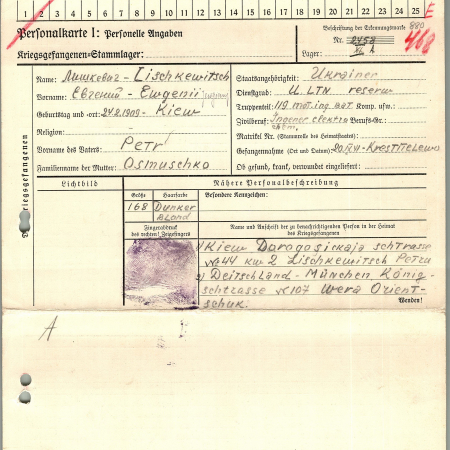 1 2 3 4 5 6 7 8 9 10 11 12 13 14 15 16 17 18 19 20 21 22 23 24 25 E
Personalkarte I: Personelle Angaben
Kriegsgefangenen-Stammlager:
Beschriftung der Erkennungsmarke
880
Nr. 2458
468
Lager:
Name: Лишкевич - Lischkewitsch
Vorname: Евгений - Ewgenii
Geburtstag und -ort: 24.2.1909 - Kiew
Religion:
Vorname des Vaters: Petr
Familienname der Mutter: Osmuschko
Staatangehörigkeit: Ukrainer
Dienstgrad: U. LTN reserw
Truppenteil: 119 mot. ing. bat Komp. usw.:
Zivilberuf: Ingener elektro Berufs-Gr.:
Matrikel Nr. (Stammrolle des Heimatstaates):
Gefangennahme (Ort und Datum):
Ob gesund, krank, verwundet eingeliefert:
Kriegsgefangenen
Lichtbild
Nähere Personalbeschreibung
Größe
Haarfarbe
Besondere Kennzeichen:
168
Dunker
Blond
Fingerabdruck
des rechten! Zeigefingers
Name und Anschrift der zu benachrichtigenden Person in der Heimat
des Kriegsgefangenen
1) Kiew Dorogosickaja schtrasse
№ 44 kw 2 Lischkewitsch Petru
2) Deitschland - München König-
schtrasse № 107 Wera Orient-
schuk.
Wenden!
A